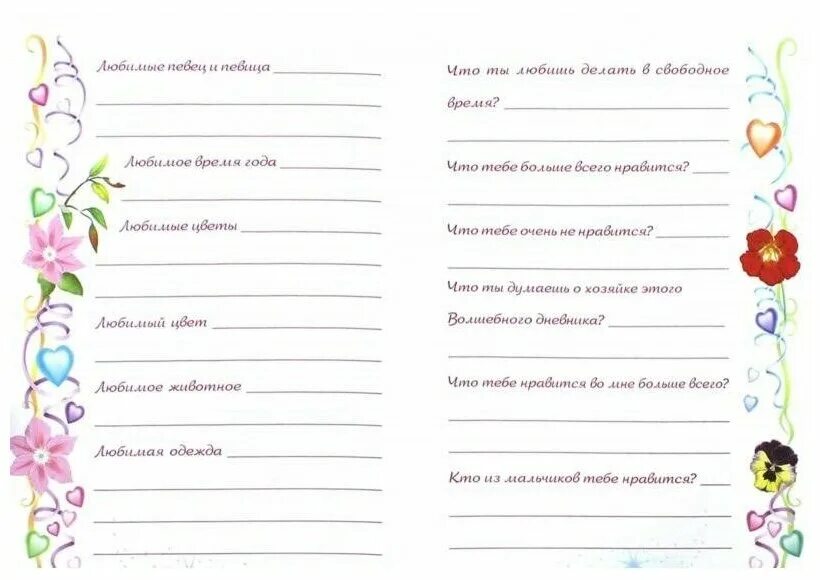 Любимые певец и певица
Любимое время года
Любимые цветы
Любимый цвет
Любимое животное
Любимая одежда
Что ты любишь делать в свободное
время?
Что тебе больше всего нравится?
Что тебе очень не нравится?
Что ты думаешь о хозяйке этого
Волшебного дневника?
Что тебе нравится во мне больше всего?
Кто из мальчиков тебе нравится?